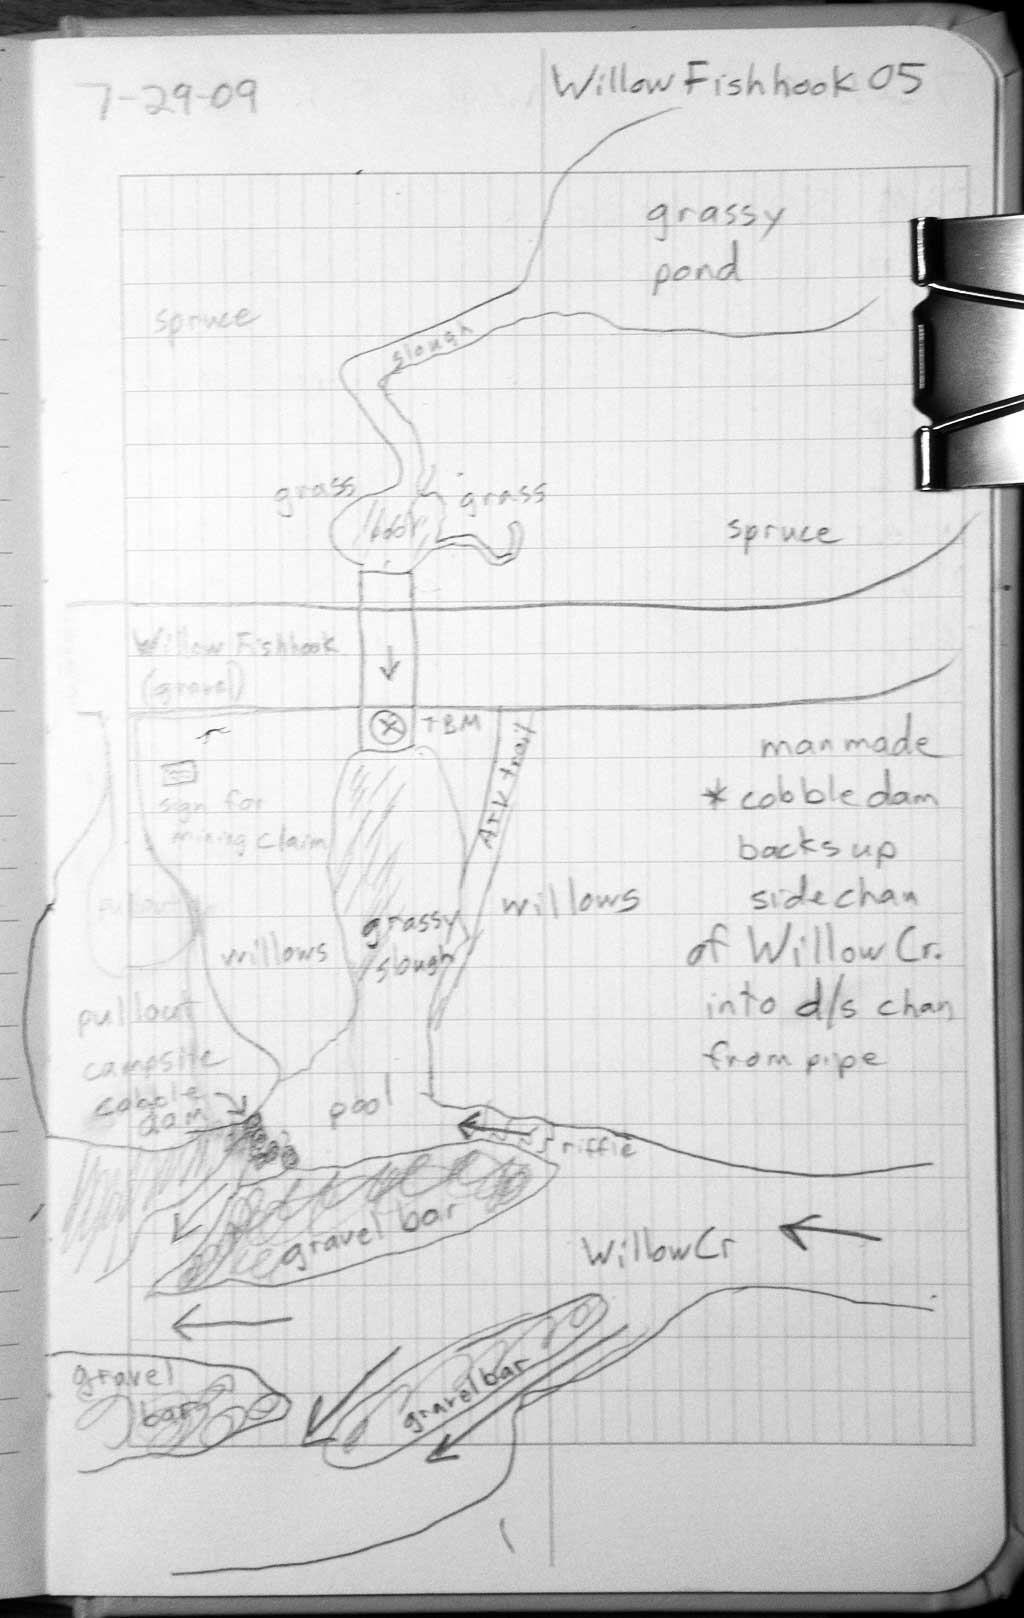 7-29-09
Willow Fishhook 05
grassy
pond
spruce
slough
grass
grass
spruce
Willow Fishhook
(gravel)
TBM
ATV trail
sign for
mining claim
manmade
* cobble dam
backs up
side chan
of Willow Cr.
into d/s chan
from pipe
pullout
willows
grassy
slough
willows
pullout
campsite
cobble
dam
pool
riffle
gravel bar
Willow Cr
gravel
bar
gravel bar